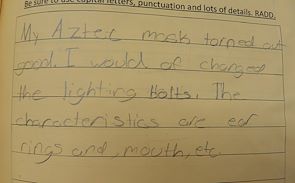 Be sure to use capital letters, punctuation and lots of details. RADD.
My Aztec mask torned out
good. I would of changed
the lighting Bolts. The
characteristics are ear
rings and, mouth, etc